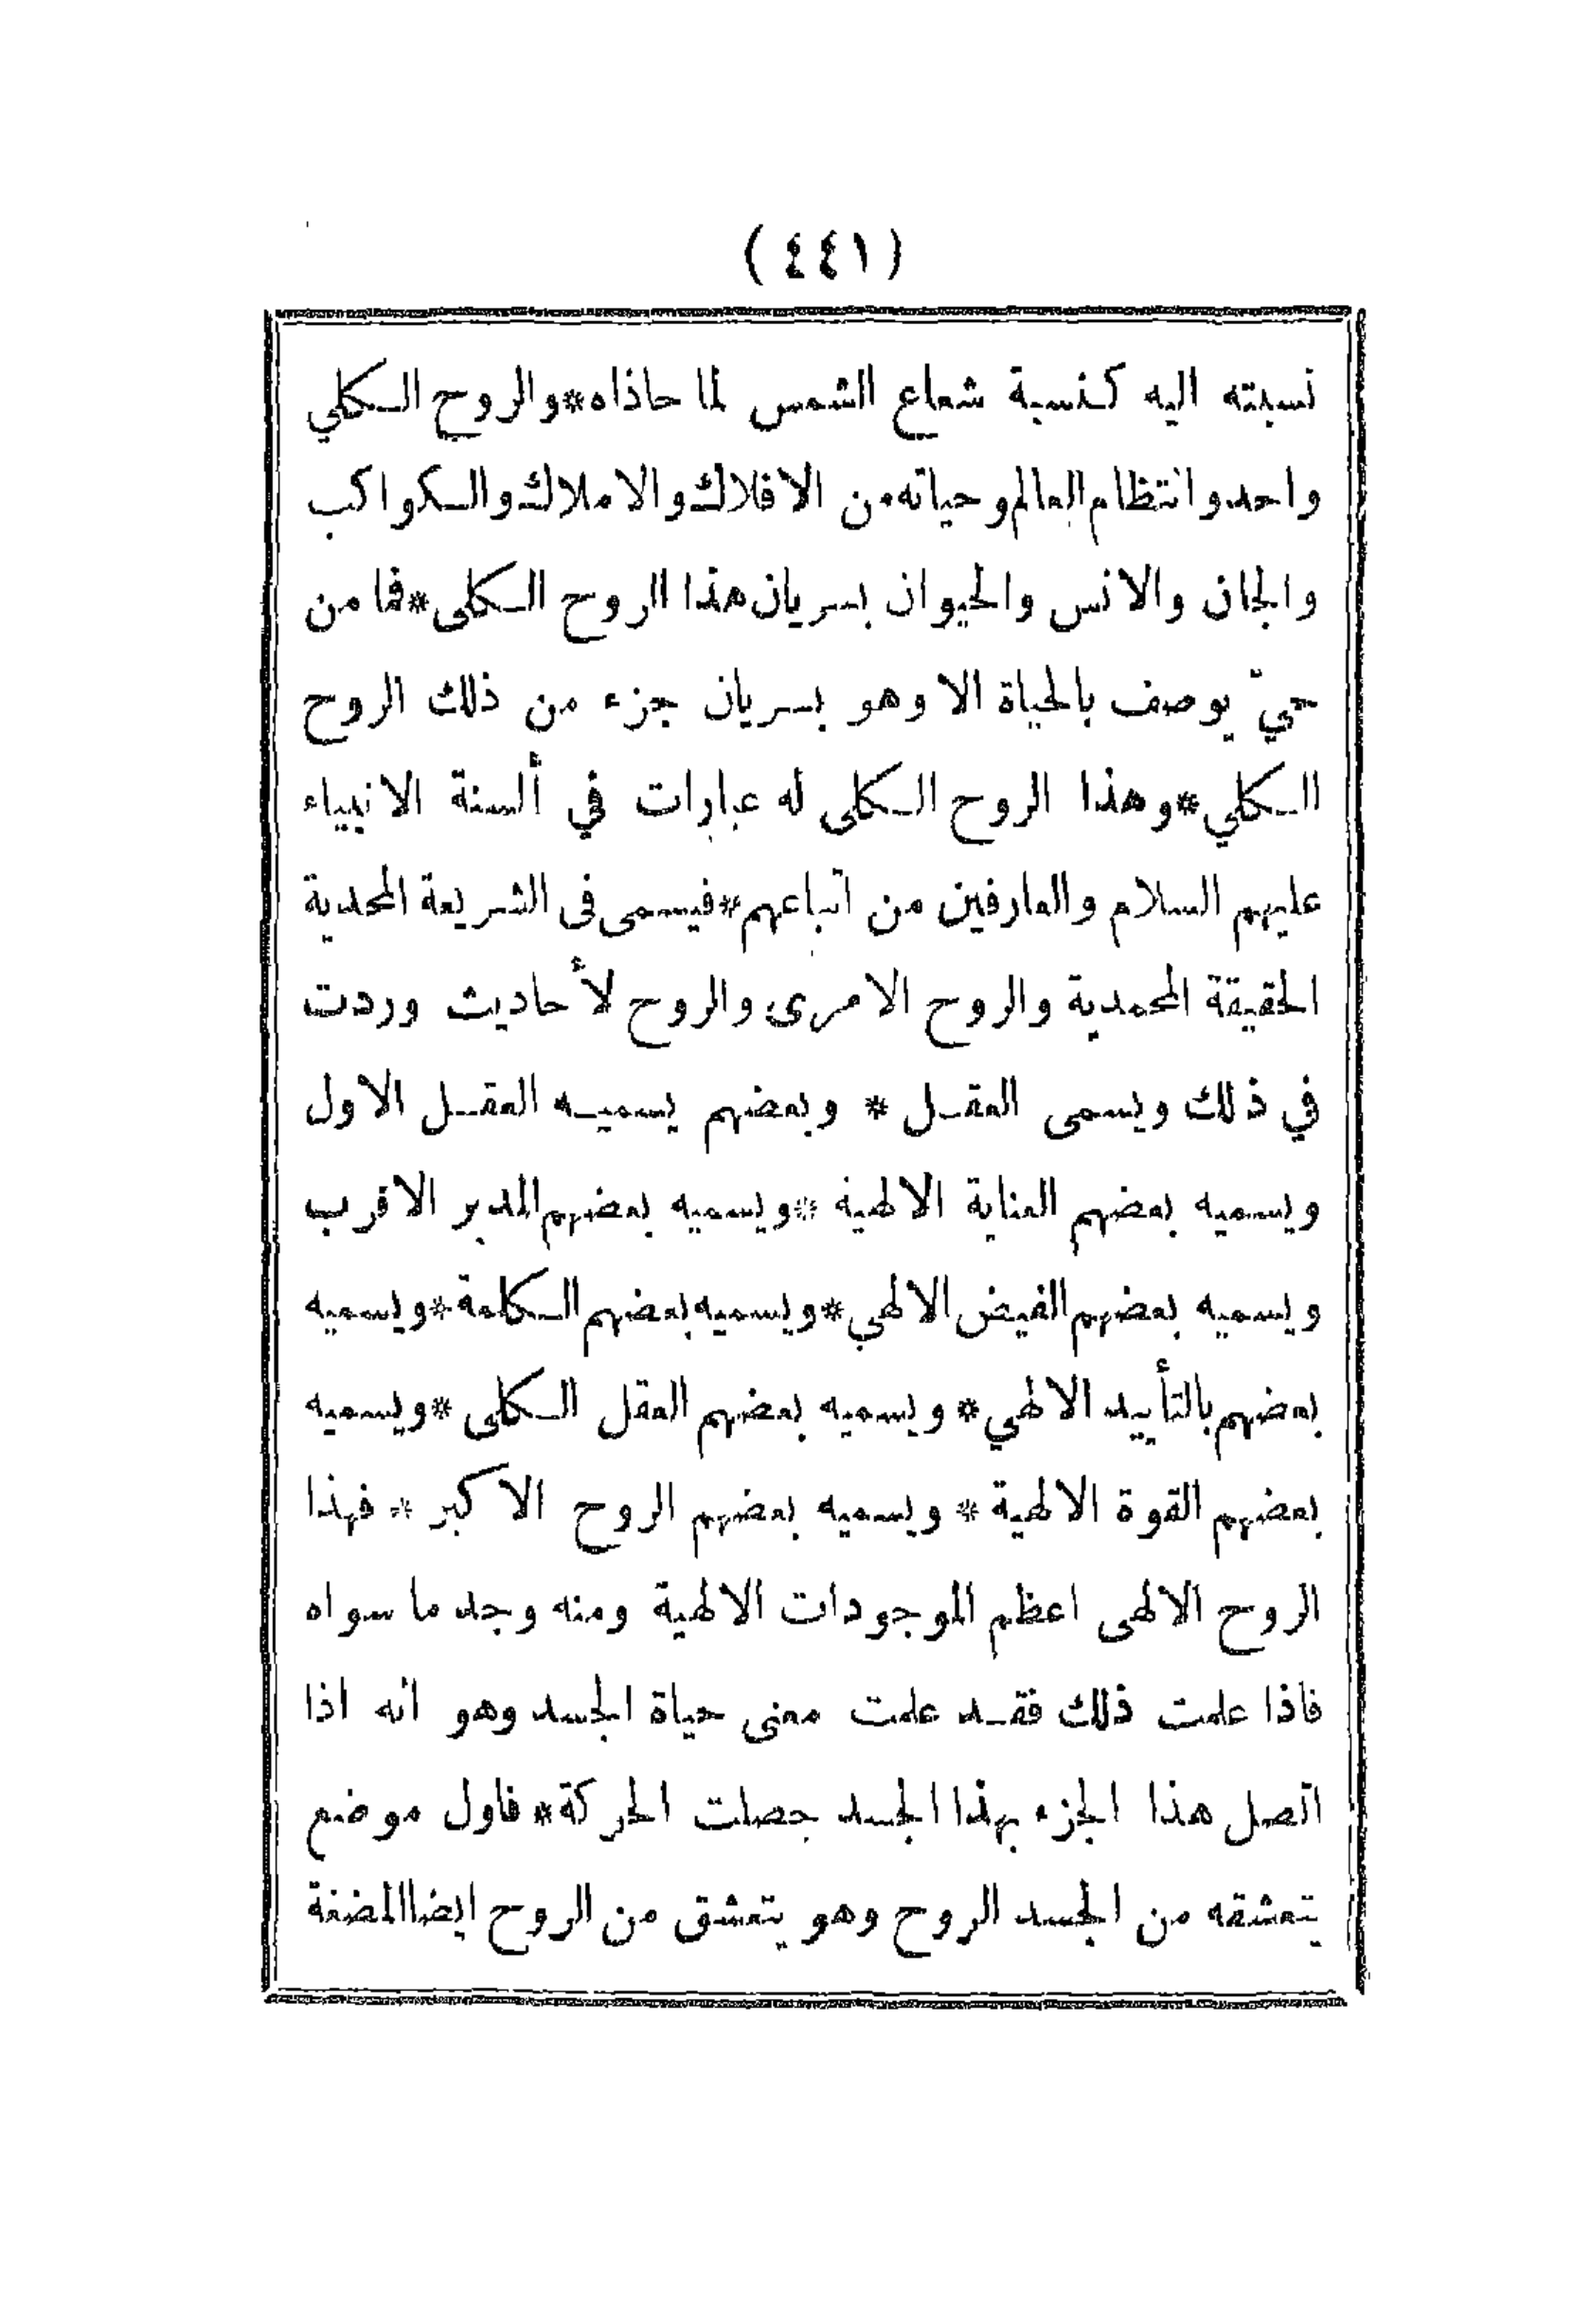 (٤٤١)
نسبته اليه كنسبة شعاع الشمس لما حاذاه * والروح الكلي
واحد وانتظام العالم وحياته من الافلاك والاملاك والكواكب
والجان والانس والحيوان بسريان هذا الروح الكلى * فما من
حيّ يوصف بالحياة الا وهو بسريان جزء من ذلك الروح
الكلي * وهذا الروح الكلى له عبارات في ألسنة الانبياء
عليهم السلام والعارفين من اتباعهم * فيسمى فى الشريعة المحمدية
الحقيقة المحمدية والروح الامرى والروح لأحاديث وردت
في ذلك ويسمى العقل * وبعضهم يسميه العقل الاول
ويسميه بعضهم العناية الالهية * ويسميه بعضهم المدبر الاقرب
ويسميه بعضهم الفيض الالهي * ويسميه بعضهم الكلمة * ويسميه
بعضهم بالتأييد الالهي * ويسميه بعضهم العقل الكلى * ويسميه
بعضهم القوة الالهية * ويسميه بعضهم الروح الاكبر * فهذا
الروح الالهى اعظم الموجودات الالهية ومنه وجد ما سواه
فاذا علمت ذلك فقد علمت معنى حياة الجسد وهو انه اذا
اتصل هذا الجزء بهذا الجسد حصلت الحركة * فاول موضع
يتعشقه من الجسد الروح وهو يتعشق من الروح ايضا المضغة